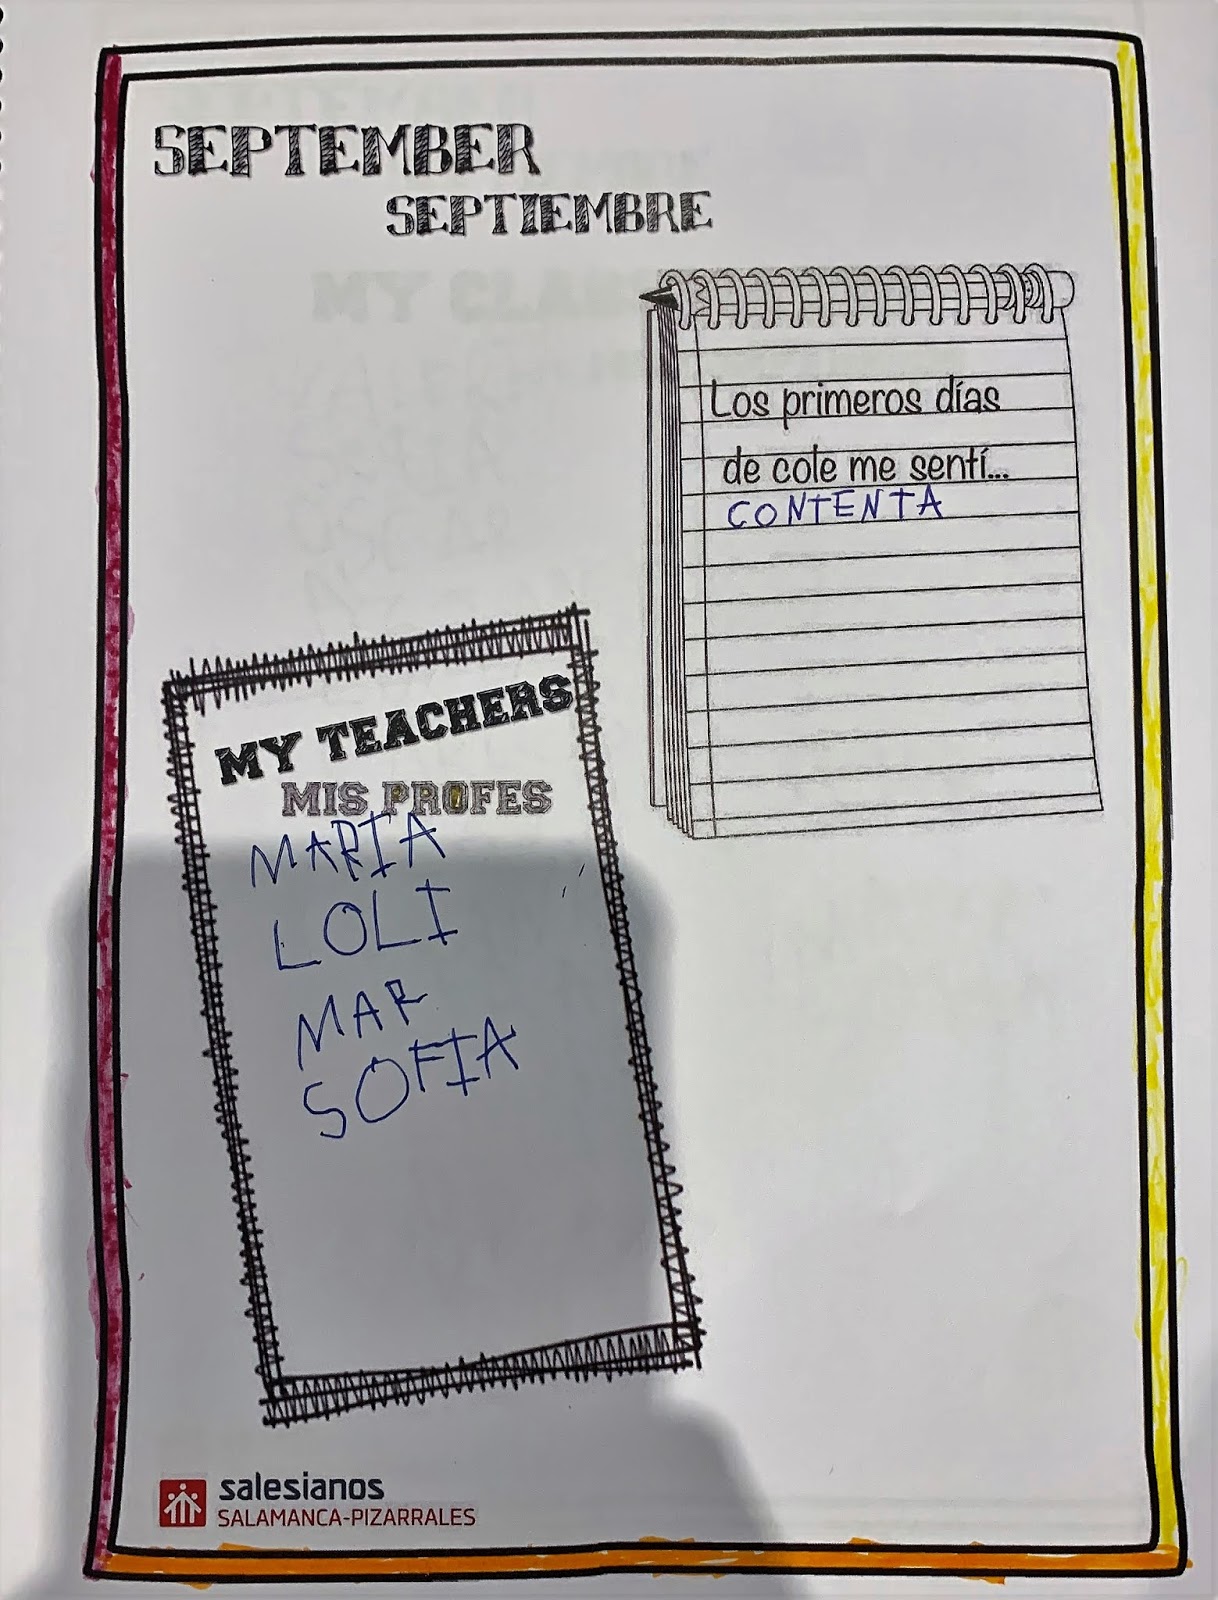 SEPTEMBER
SEPTIEMBRE
Los primeros días
de cole me sentí...
CONTENTA
MY TEACHERS
MIS PROFES
MARIA
LOLI
MAR
SOFIA
salesianos
SALAMANCA-PIZARRALES